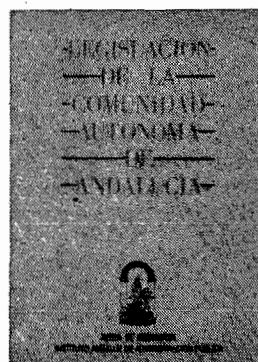 LEGISLACION
DE LA
COMUNIDAD
AUTONOMA
DE
ANDALUCIA